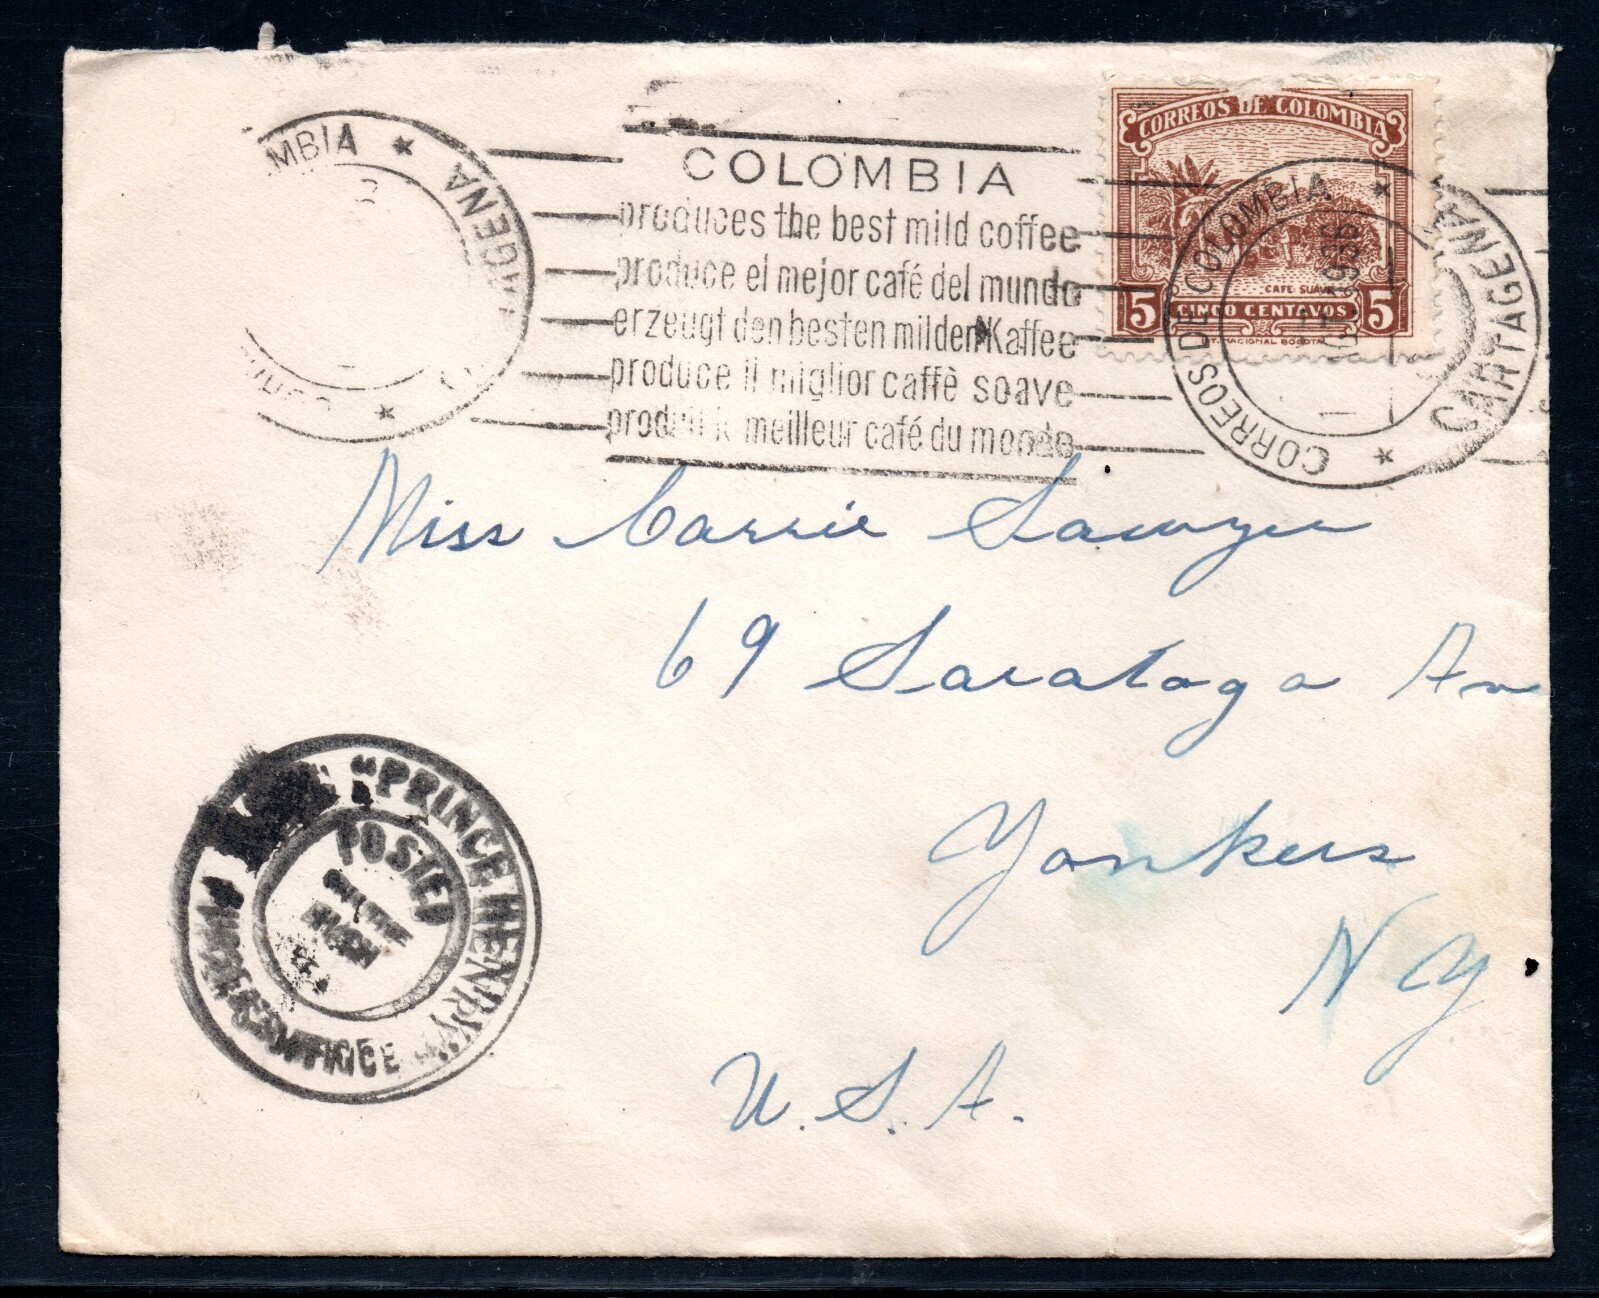 MBIA * CARTAGENA *
COLOMBIA
produces the best mild coffee
produce el mejor café del mundo
erzeugt den besten milden Kaffee
produce il miglior caffè soave
produit le meilleur café du monde
CORREOS DE COLOMBIA
CAFE SUAVE
5 CINCO CENTAVOS 5
NACIONAL BOGOTA
CORREOS DE COLOMBIA * CARTAGENA *
1936
Miss Carrie Sawyer
69 Saratoga Av
Yonkers
N Y
U. S. A.
"PRINCE HENRY"
POSTED